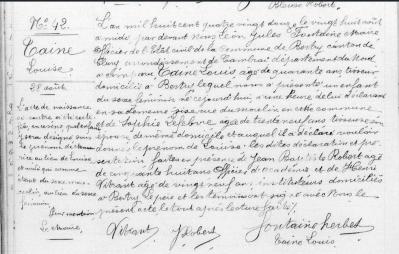 Robert.
N° 42
Taine
Louise
28 août
L'an mil huit cent quatre vingt douze, le vingt huit août
à midi, par devant Nous Léon Jules Fontaine Maire
officier de l'Etat civil de la Commune de Bertry canton de
Clary, arrondissement de Cambrai département du Nord
a comparu Taine Louis âgé de quarante ans tisseur
domicilié à Bertry lequel nous a présenté un enfant
du sexe féminin né aujourd'hui à une heure
en sa demeure en cette commune
et de Sophie Lefebvre âgée de trente neuf ans tisseuse son
épouse demême domicile et auquel il a déclaré vouloir
donner le prénom de Louise. Les dites déclaration et pré-
sentation faites en présence de Jean Baptiste Robert âgé
de cinquante huit ans officier d'académie et de Henri
Vitrant âgé de vingt neuf ans, instituteurs domiciliés
à Bertry. Le père et les témoins ont signé avec Nous le
présent acte le tout après lecture faite.
L'acte de naissance
ci contre
sera désigné sous
le prénom de
au lieu de Louise
et
étant du sexe mas-
culin, au lieu du sexe
féminin.
Pour mention
Le Maire,
Vitrant
J Robert
Fontaine herbet
Taine Louis